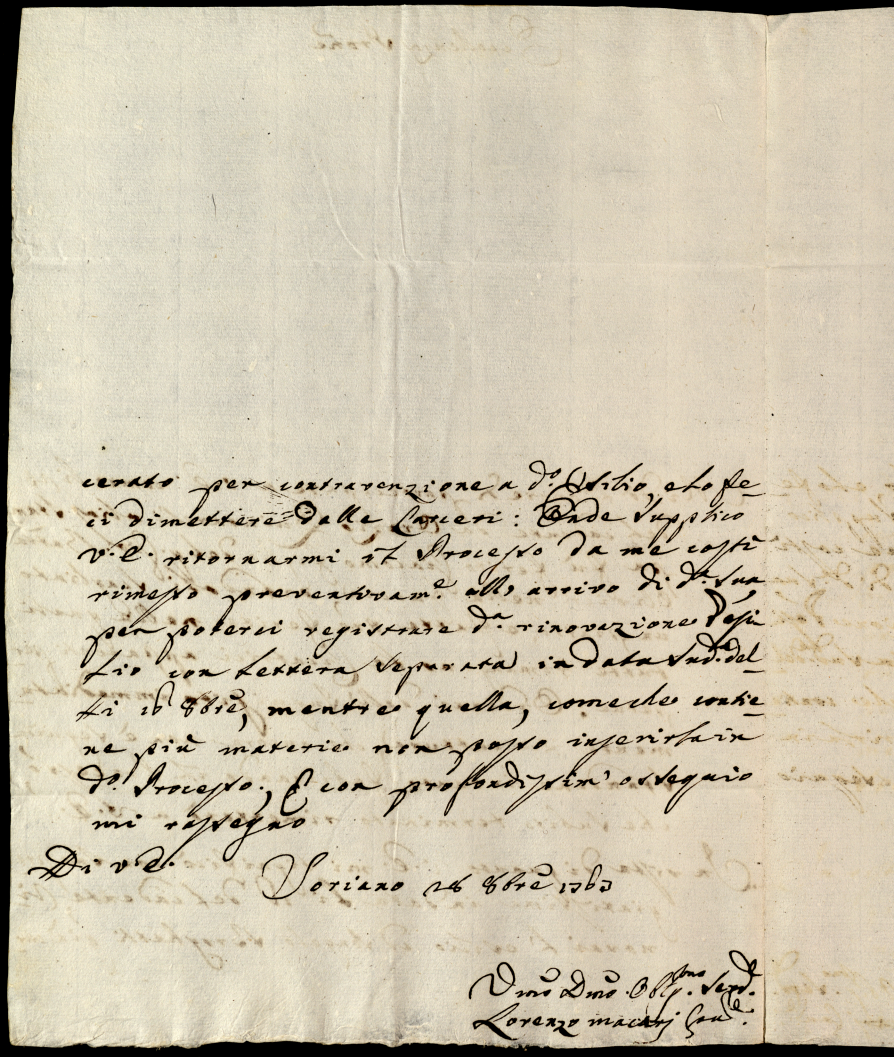 cerato per contravenzione a d.º Esilio, e lo fe=
ci dimettere dalle Carceri: Onde supplico
V. E. ritornarmi il Processo da me costì
rimesso preventivam.e all'arrivo di d.ª sua,
per poterci registrare d.ª rinovazione d'esi
lio con lettera separata in data sud.ª del=
li 16 8bre, mentre quella, comeche contie=
ne più materie non posso inserirla in
d.º Processo, E con profondissim' ossequio
mi rassegno
Di V. E.
Soriano 28 8bre 1763
Umo Dmo Obbl.mo Serv.
Lorenzo Macarj